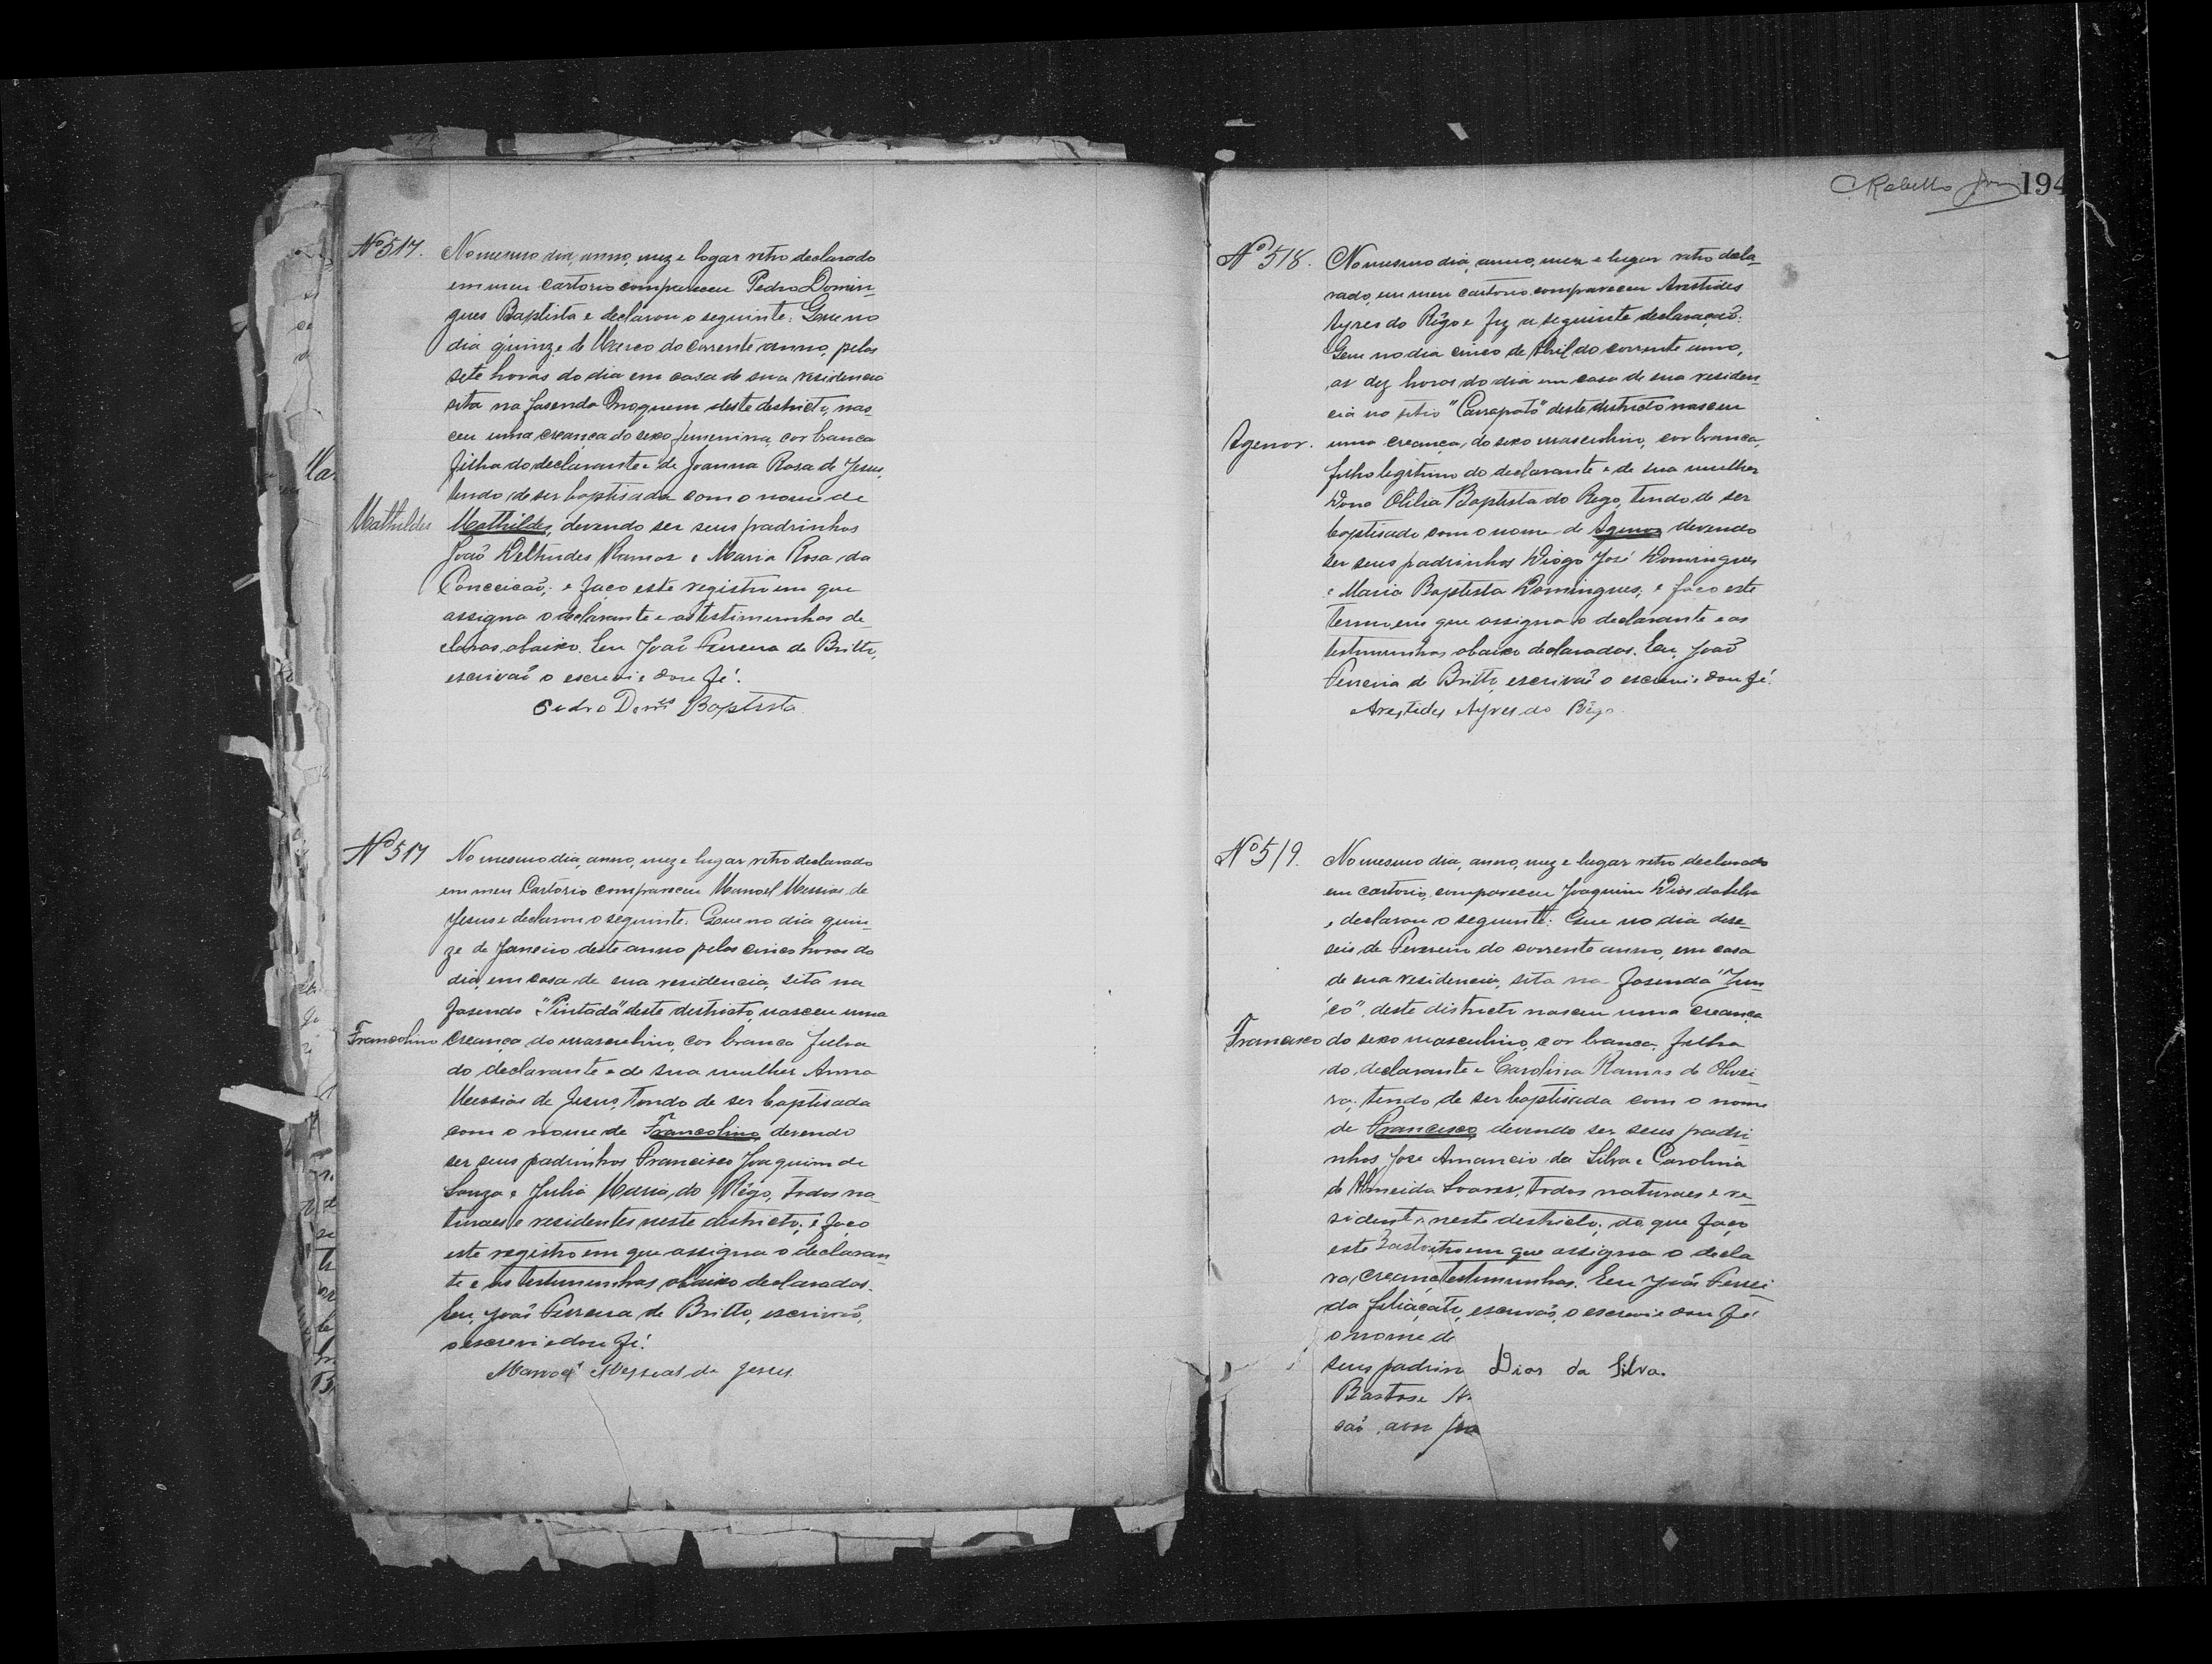 Nº 517. No mesmo dia, anno, mez e logar retro declarado
em meu Cartorio compareceu Pedro Domin-
gues Baptista e declarou o seguinte: Que no
dia quinze de Março do corrente anno, pelas
sete horas do dia em casa de sua residencia
sita na fasenda deste destricto, nas
ceu uma creança do sexo femenina, cor branca
filha do declarante e de Joanna Rosa de Jesus,
tendo de ser baptisada com o nome de
Mathildes Mathildes, devendo ser seus padrinhos
João Deltrudes Ramos e Maria Rosa da
Conceicaõ; e faço este registro em que
assigna o declarante e as testimunhas de-
claras abaixo. Eu João Ferreira de Britto,
escrivaõ o escrevi e dou fé.
Pedro Domes Baptista
Nº 517 No mesmo dia, anno, mez e lugar retro declarado
em meu Cartorio compareceu Manoel Messias de
Jesus e declarou o seguinte: Que no dia quin-
ze de Janeiro deste anno pelas cinco horas do
dia, em casa de sua residencia, sita na
fasenda "Pintada" deste destricto, nasceu uma
Francolino creança do masculino, cor branca filha
do declarante e de sua mulher Anna
Messias de Jesus, tendo de ser baptisada
com o nome de Francolino, devendo
ser seus padrinhos Francisco Joaquim de
Souza e Julia Maria do Rêgo, todos na-
turaes e residentes neste destricto; e faço
este registro em que assigna o declaran-
te e as testimunhas abaixo declaradas.
Eu, João Ferreira de Britto, escrivaõ,
o escrevi e dou fé.
Manoel Messias de Jesus
C. Rabello 194
Nº 518. No mesmo dia, anno, mez e lugar retro decla-
rado, em meu cartorio compareceu Arestides
Ayres do Rêgo e fez a seguinte declaraçaõ:
Que no dia cinco de Abril do corrente anno,
as dez horas do dia em casa de sua residen-
cia no sitio "Carrapato" deste destricto nasceu
Agenor. uma creança, do sexo masculino, cor branca,
filho legitimo do declarante e de sua mulher
Dona Otilia Baptista do Rego, tendo de ser
baptisado com o nome de Agenor devendo
ser seus padrinhos Diogo José Domingues
e Maria Baptista Domingues; e faço este
termo em que assigna o declarante e as
testimunhas abaixo declaradas. Eu, João
Ferreira de Britto, escrivaõ o escrevi e dou fé.
Arestides Ayres do Rêgo.
Nº 519. No mesmo dia, anno, mez e lugar retro declarado
em cartorio, compareceu Joaquim Dias da Silva
e declarou o seguinte: Que no dia deze-
seis de Fevereiro do corrente anno, em casa
de sua residencia, sita na fasenda "Jun-
co", deste districto nasceu uma creança
Francisco do sexo masculino, cor branca, filha
do declarante e Carolina Ramos de Olivei-
ra; tendo de ser baptisada com o nome
de Francisco, devendo ser seus padri-
nhos José Amancio da Silva e Carolina
de Almeida Soares, todos naturaes e re-
sidentes neste destricto; do que faço
este em que assigna o decla
ra, creança testimunhas. Eu João Ferrei
da filiaçaõ, escrivaõ, o escrevi e dou fé
o nome de
seus padrin Dias da Silva.
Bastos e
saõ